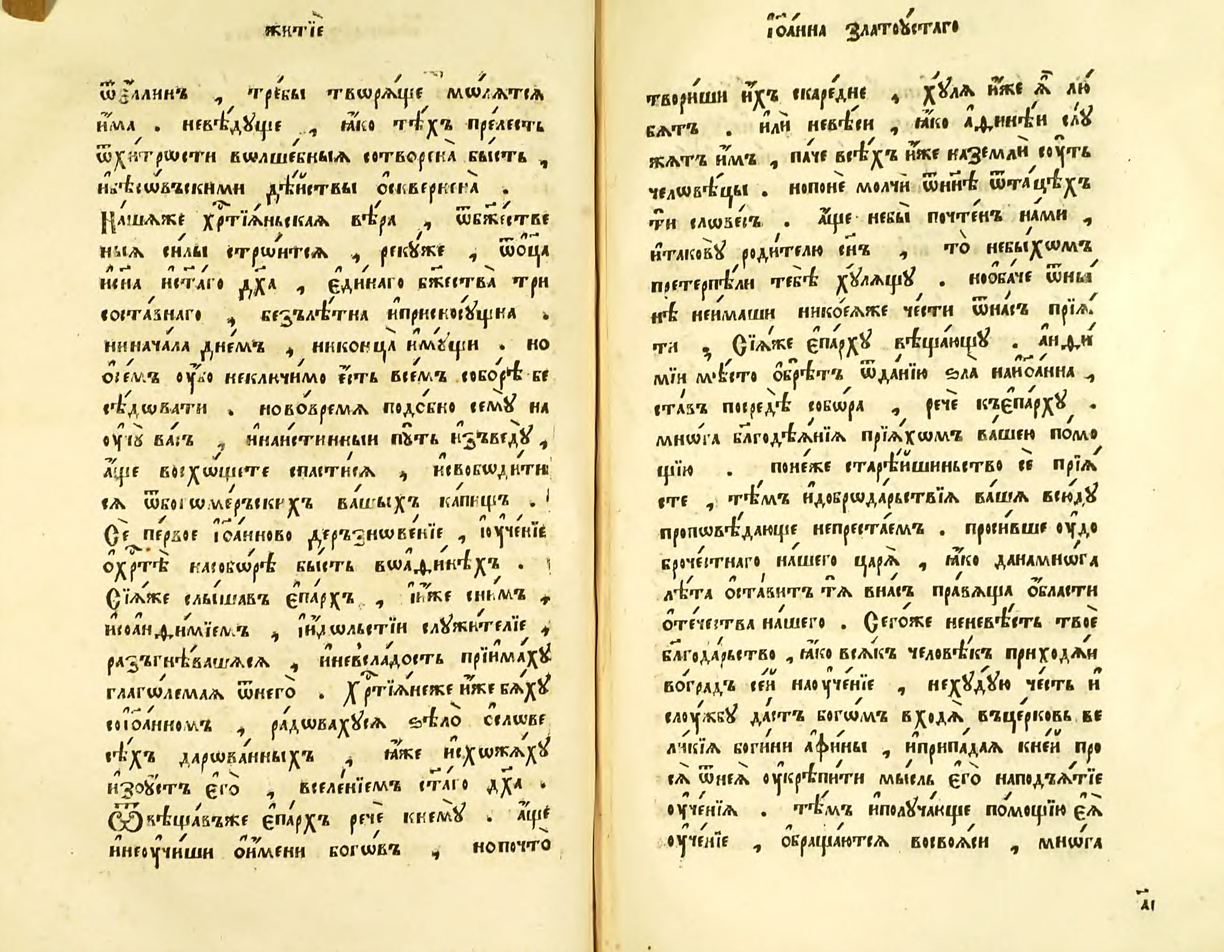 житїе
ѿѯллинъ , тре́бы твѡрѧ́щїе мѡ́лѧтсѧ
и҆́ма . невѣ́дꙋще , ꙗ҆́кѡ тѣ́хъ пре́лесть
ѿхи́трѡсти вѡлше́бныѧ сотворена̀ бы́сть ,
и҆бѣсѡ́въскими дѣ́йствы ѡ҆скверне́на .
На́шѧже хр҃тїѧ́ньскаѧ вѣ́ра , ѿбж҃е́стве
ныѧ си́лы стрѡ́итсѧ , реку́же , ѿѻ҆ц҃а
и҆сн҃а и҆ст҃а́гѡ дх҃а , є҆ди́наго бж҃ества̀ три
соста́внаго , безълѣ́тна и҆присносꙋ́щна .
ниначáла днéмъ , никонца̀ и҆мꙋ́щи . но
ѡ҆се́мъ ѹ҆́бо неключи́мо є҆́сть все́мъ собо́рѣ бе
сѣ́дѡвати . ново́времѧ подо́бно семꙋ̀ на
ѹ҆чꙋ̀ ва́съ , и҆наи́стинныи пꙋ́ть и҆зъведꙋ̀ ,
а҆́ще восхѡ́щете спасти́сѧ , и҆свобѡди́ти
сѧ ѿбогѡме́ръскихъ ва́шыхъ ка́пищъ .
Сѐ пе́рвое і҆ѡа́нново де́рзнѡве́нїе , і҆ѹче́нїе
ѡ҆хр҃тѣ̀ насобѡ́рѣ бы́сть вѡаѳинѣхъ .
Сїѧ̀же слы́шавъ є҆па́рхъ , і҆и҆́же сни́мъ ,
и҆соанѳи́мїемъ , і҆и҆дѡльстїи слꙋжи́телїе ,
разъгнѣ́вашѧсѧ , и҆невсла́дость прїима́хꙋ
глагѡ́лемаѧ ѿнегѡ̀ . Хр҃тїѧ́неже и҆́же бѧ́хꙋ
соі҆ѡа́нномъ , ра́дѡвахꙋсѧ ѕѣлѡ̀ ѡ҆слове
сѣ́хъ дарѡва́нныхъ , ꙗ҆́же и҆схѡжѧ́хꙋ
и҆зоу҆́стъ є҆гѡ̀ , вселе́нїемъ ст҃а́го дх҃а .
Ѿвѣща́въже є҆па́рхъ речѐ кнемꙋ̀ . а҆́ще
и҆неѹ҆чи́ши ѡ҆и҆́мени богѡ́въ , нопочто̀
і҆ѡа́нна златоꙋ́стаго
твори́ши и҆́хъ скаре́дне , хꙋ́лѧ и҆́же ѧ҆̀ лю́
бѧтъ . и҆лѝ невѣ́си , ꙗ҆́ко а҆ѳинѣ́и слꙋ́
жѧтъ и҆́мъ , па́че всѣ́хъ и҆́же наземлѝ сꙋ́ть
человѣ́цы . нопонѐ молчѝ ѿни́нѣ ѿта́цѣхъ
ти слове́съ . а҆́ще небы̀ почте́нъ на́ми ,
и҆тако́вꙋ роди́телю сн҃ъ , то̀ небы́хѡмъ
претерпѣ́ли тебѣ̀ хꙋ́лѧщꙋ . ноѻба́че ѿны́
нѣ неи́маши никоеѧ́же че́сти ѿна́съ прїѧ́
ти , Сїѧ̀же є҆па́рхꙋ вѣща́ющꙋ . а҆нѳи́
мїи мѣ́сто ѡ҆брѣ́тъ ѿда́нїю ѕла̀ наі҆ѡ́анна ,
ста́въ посредѣ̀ собѡ́ра , речѐ къє҆па́рхꙋ .
мнѡ́га бл҃годѣѧ́нїѧ прїѧ́хѡмъ ва́шею по́мо
щїю . поне́же старѣ́йшиньство сѐ прїѧ́
сте , тѣ́мъ и҆добрѡда́рьствїѧ ва́шѧ всю́дꙋ
пропѡвѣ́дающе непреста́емъ . проси́вше ѹ҆до
бро́честнаго на́шего царѧ̀ , ꙗ҆́ко данамнѡ́га
лѣ́та ѡ҆ста́витъ тѧ̀ внáсъ пра́вѧща ѻ҆́бласти
ѻ҆те́чества на́шего . Сего́же неневѣ́сть твоѐ
бл҃года́рьство , ꙗ҆́ко всѧ́къ человѣ́къ приходѧ́и
во́градъ се́й наѹ҆че́нїе , нехꙋдꙋ́ю че́сть и҆
слоу́жбꙋ да́стъ бого́мъ входѧ̀ въце́рковь ве
ли́кїѧ боги́ни а҆ѳи́ны , и҆припа́даѧ кне́й про
сѧ̀ ѿнеѧ̀ ѹ҆крѣпи́ти мы́сль є҆гѡ̀ наподъѧ́тїе
ѹ҆че́нїѧ . тѣ́мъ и҆полꙋча́юще по́мощїю є҆ѧ̀
ѹ҆че́нїе , ѻ҆браща́ютсѧ восвоѧ́си , мнѡ́га
а҃і